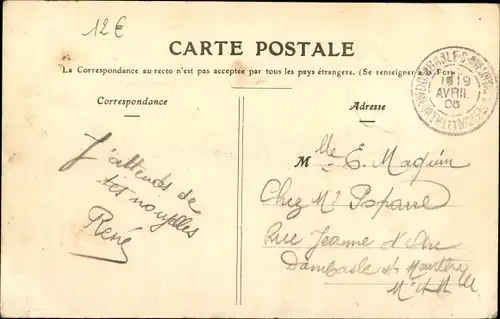 12€
CARTE POSTALE
La Correspondance au recto n'est pas acceptée par tous les pays étrangers. (Se renseigner à la Poste)
Correspondance
Adresse
19
AVRIL
08
J'attends de
tes nouvelles
René
Mlle E. Maquin
Chez Mr
Rue Jeanne d'Arc
Dombasle s/ Meurthe
M et Mlle